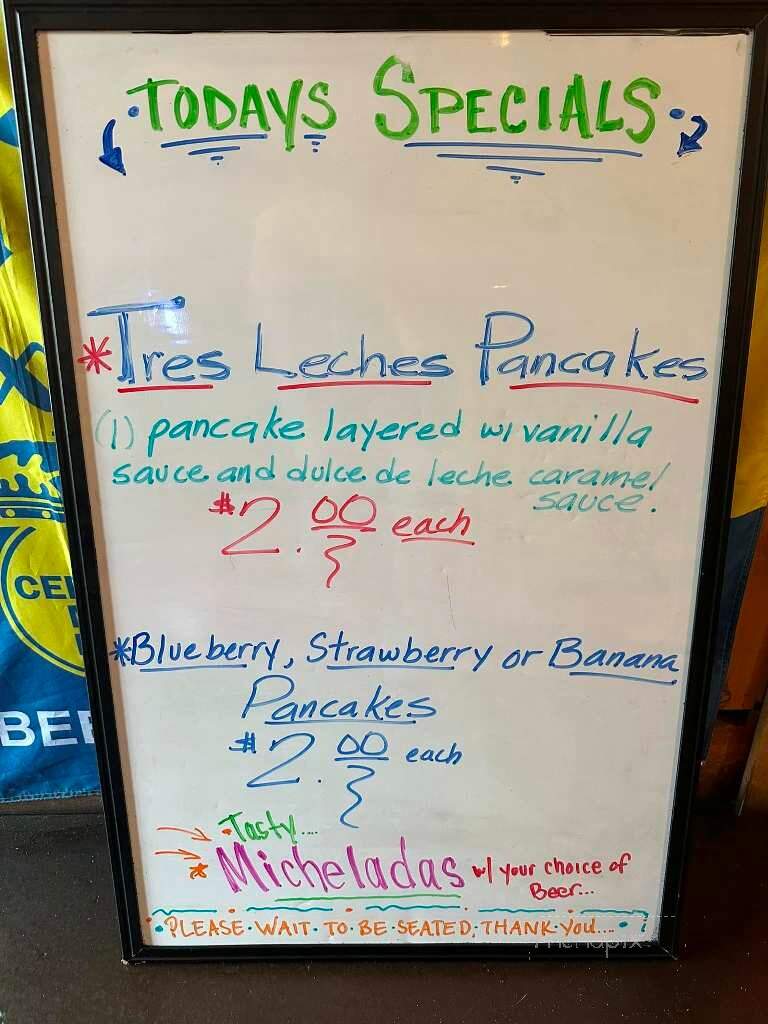 TODAYS SPECIALS
*Tres Leches Pancakes
(1) pancake layered w/ vanilla
sauce and dulce de leche caramel
sauce.
$2.00 each
*Blueberry, Strawberry or Banana
Pancakes
$2.00 each
Tasty....
*Micheladas w/ your choice of
Beer...
PLEASE WAIT TO BE SEATED, THANK You....
CE
BEE